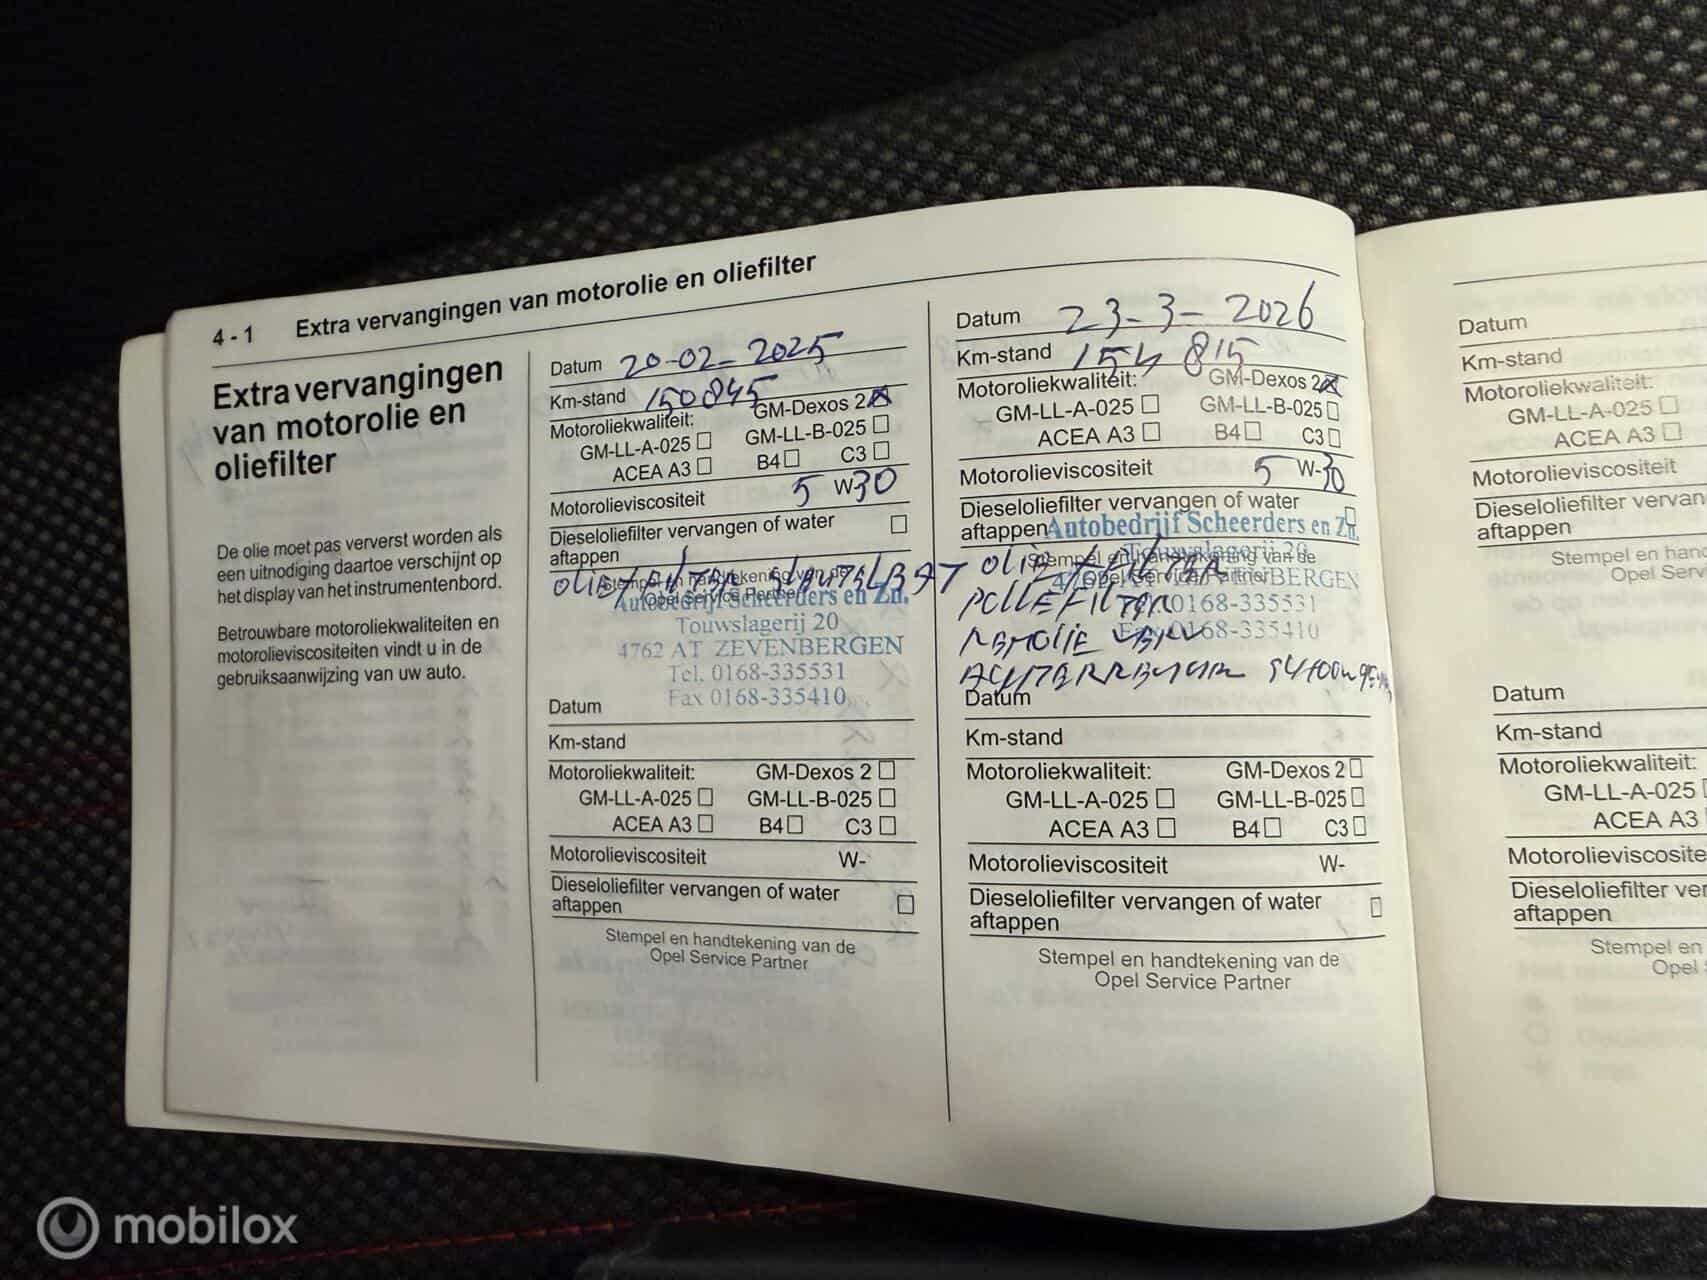 4 - 1 Extra vervangingen van motorolie en oliefilter
Extra vervangingen
van motorolie en
oliefilter
De olie moet pas ververst worden als
een uitnodiging daartoe verschijnt op
het display van het instrumentenbord.
Betrouwbare motoroliekwaliteiten en
motorolieviscositeiten vindt u in de
gebruiksaanwijzing van uw auto.
Datum 20-02-2025
Km-stand 150845
Motoroliekwaliteit: GM-Dexos 2
GM-LL-A-025 GM-LL-B-025
ACEA A3 B4 C3
Motorolieviscositeit 5 W30
Dieseloliefilter vervangen of water
aftappen
OLIE + FILTER SLEUTELBAT
Stempel en handtekening van de
Opel Service Partner
Autobedrijf Scheerders en Zn.
Touwslagerij 20
4762 AT ZEVENBERGEN
Tel. 0168-335531
Fax 0168-335410
Datum
Km-stand
Motoroliekwaliteit: GM-Dexos 2
GM-LL-A-025 GM-LL-B-025
ACEA A3 B4 C3
Motorolieviscositeit W-
Dieseloliefilter vervangen of water
aftappen
Stempel en handtekening van de
Opel Service Partner
Datum 23-3-2026
Km-stand 154815
Motoroliekwaliteit: GM-Dexos 2
GM-LL-A-025 GM-LL-B-025
ACEA A3 B4 C3
Motorolieviscositeit 5 W-30
Dieseloliefilter vervangen of water
aftappen
Autobedrijf Scheerders en Zn.
Touwslagerij 20
Stempel en handtekening van de
OLIE + FILTER
Opel Service Partner
ZEVENBERGEN
POLLEFILTER
0168-335531
REMOLIE
Fax 0168-335410
Datum
Km-stand
Motoroliekwaliteit: GM-Dexos 2
GM-LL-A-025 GM-LL-B-025
ACEA A3 B4 C3
Motorolieviscositeit W-
Dieseloliefilter vervangen of water
aftappen
Stempel en handtekening van de
Opel Service Partner
Datum
Km-stand
Motoroliekwaliteit:
GM-LL-A-025
ACEA A3
Motorolieviscositeit
Dieseloliefilter vervan
aftappen
Stempel en hand
Opel Serv
Datum
Km-stand
Motoroliekwaliteit:
GM-LL-A-025
ACEA A3
Motorolieviscosite
Dieseloliefilter ver
aftappen
Stempel en
Opel
mobilox